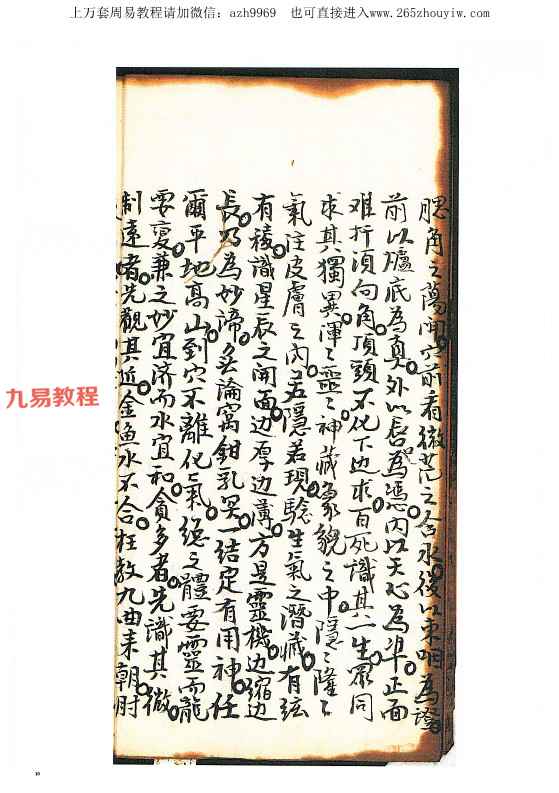 上万套周易教程请加微信：azh9969　也可直接进入www.265zhouyiw.com
腮角之蕩開穴前看微茫之合水後以束咽為證
前以爐底為真外以唇為憑內以天心為準正面
难扦須向角頂頭不化下边求百死識其一生眾同
求其獨異渾〻靈〻神藏象貌之中隱〻隆〻
氣注皮膚之內若隱若現驗生氣之潛藏有弦
有稜識星辰之開面边厚边薄方是靈機边縮边
長乃為妙諦無論窩鉗乳突一結定有用神任
爾平地高山到穴不離化氣總之體要靈而龍
要變兼之妙宜济而水宜和貪多者先識其微
制遠者先觀其近金魚水不合枉教九曲来朝肘
九易教程